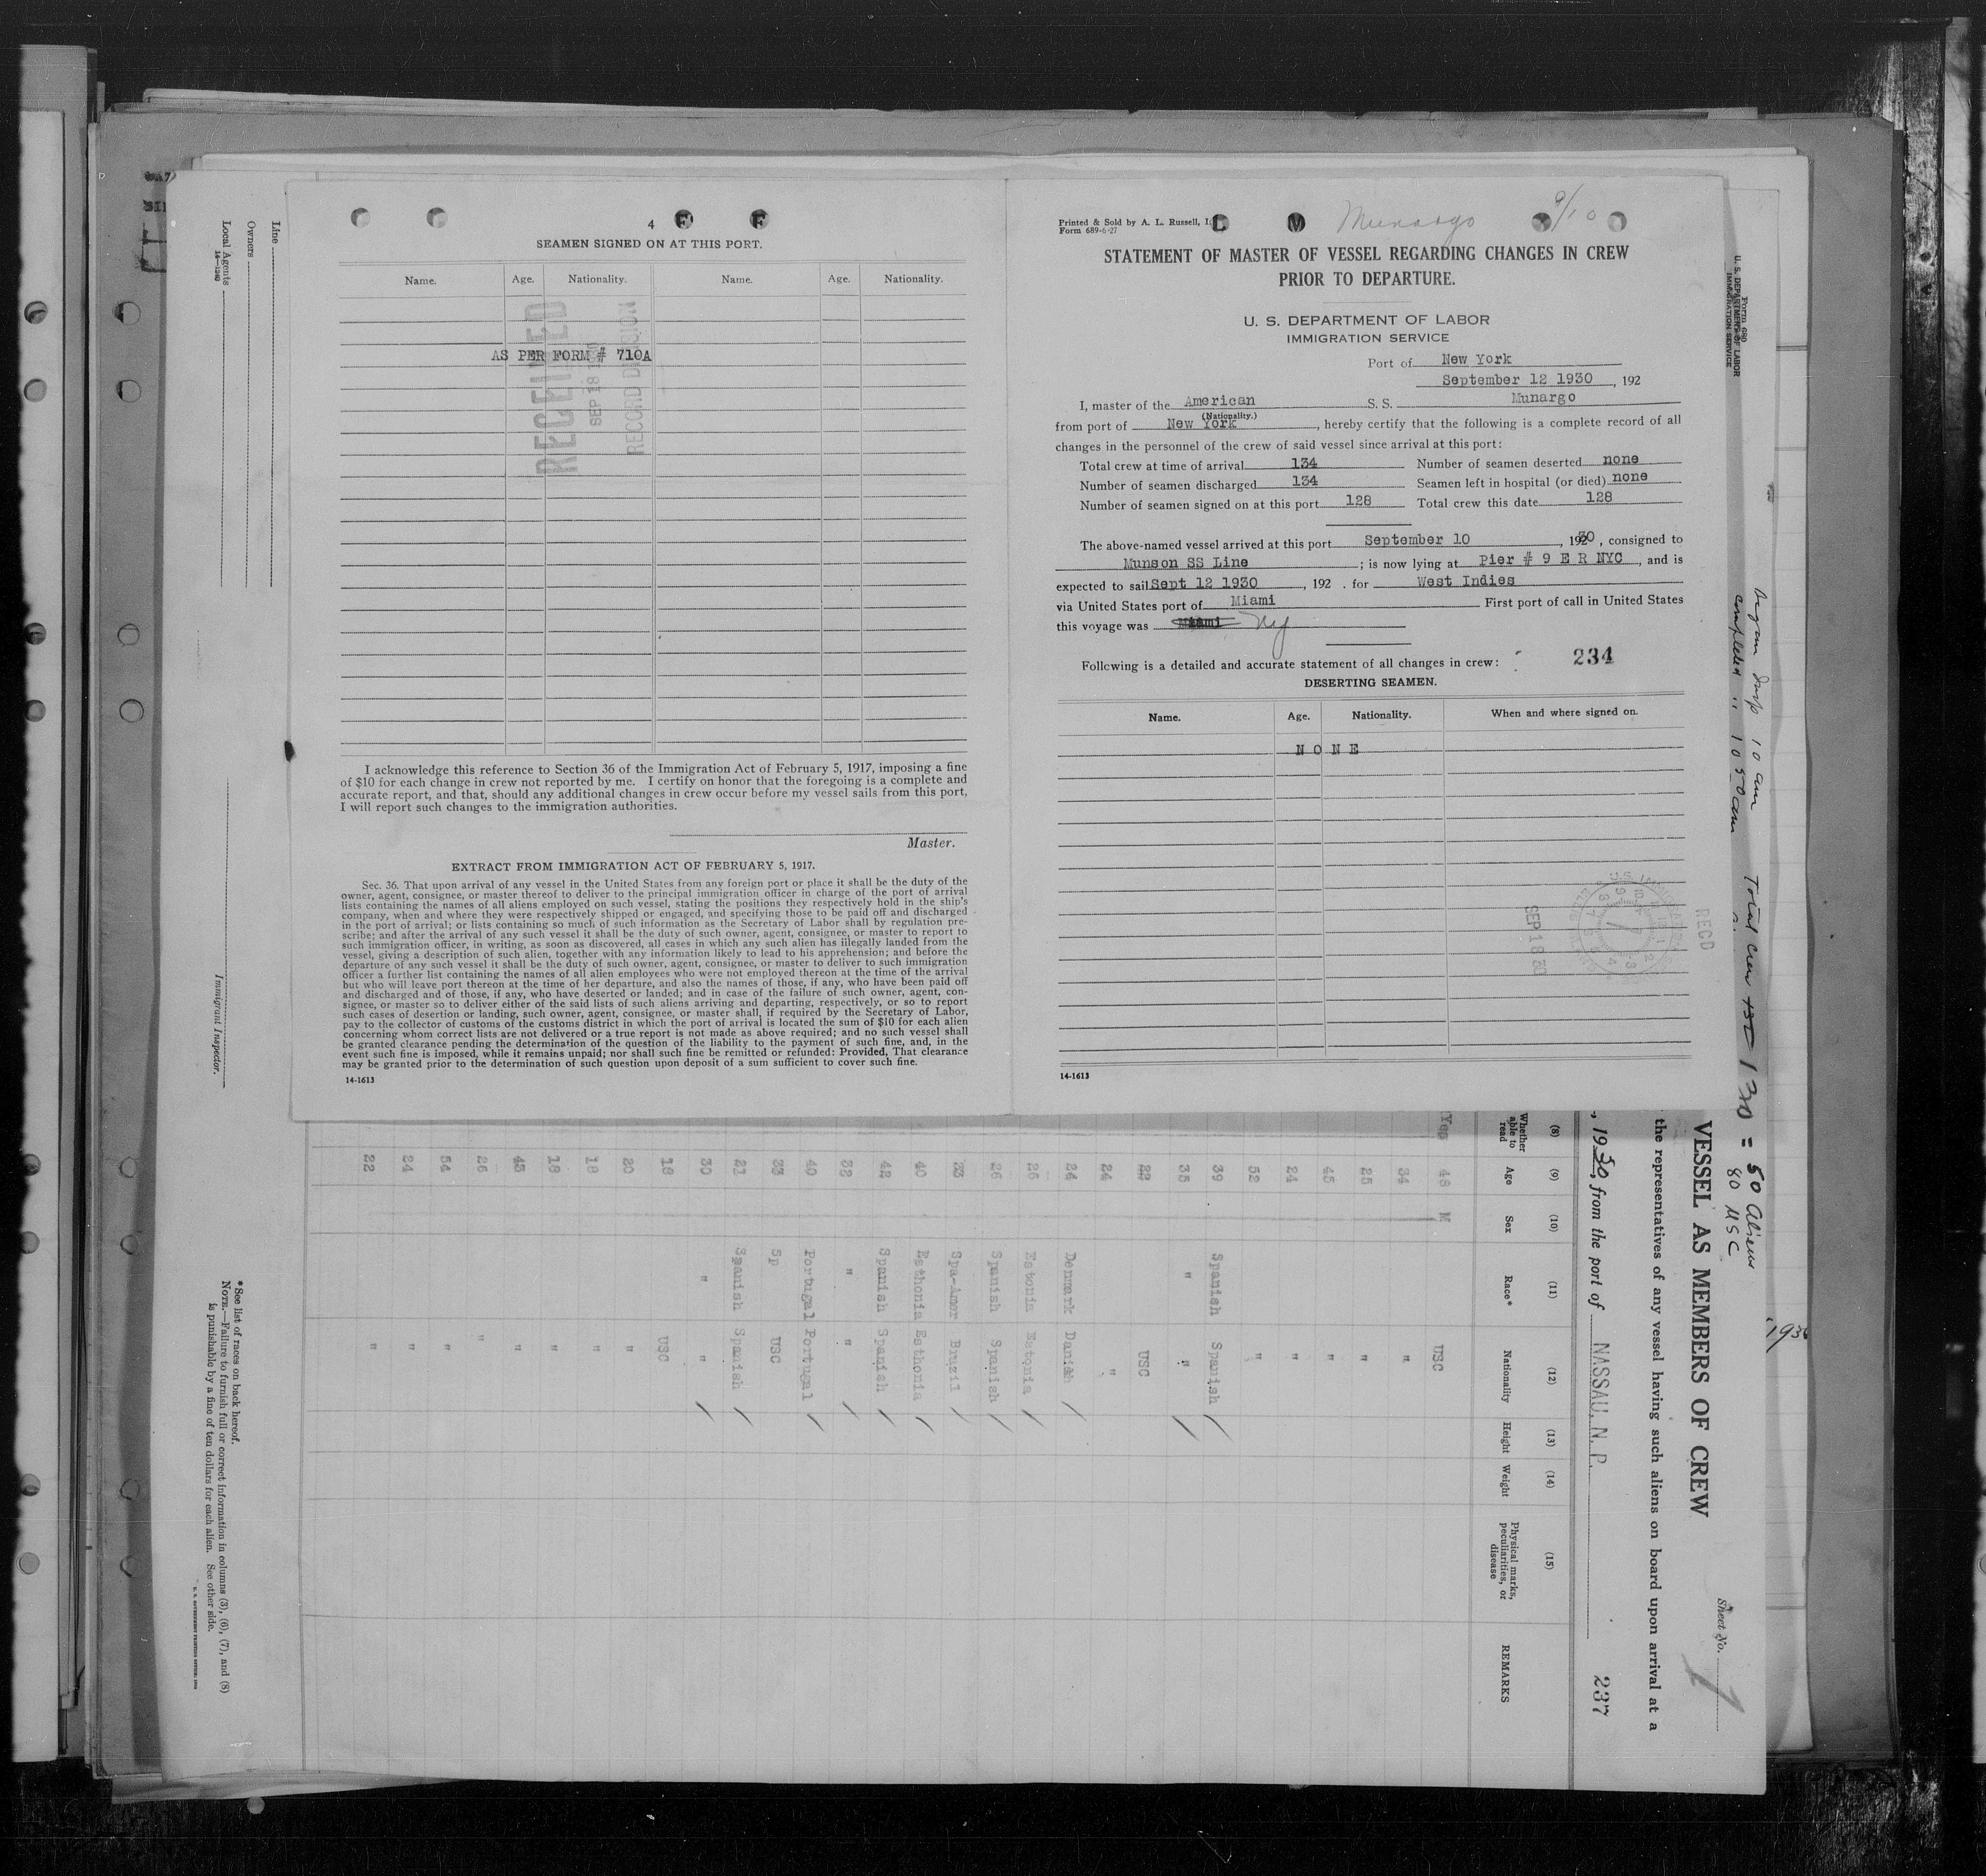 4
SEAMEN SIGNED ON AT THIS PORT.
Name. Age. Nationality. Name. Age. Nationality.
AS PER FORM # 710A
RECEIVED
SEP 18 1930
RECORD DIVISION
I acknowledge this reference to Section 36 of the Immigration Act of February 5, 1917, imposing a fine
of $10 for each change in crew not reported by me. I certify on honor that the foregoing is a complete and
accurate report, and that, should any additional changes in crew occur before my vessel sails from this port,
I will report such changes to the immigration authorities.
Master.
EXTRACT FROM IMMIGRATION ACT OF FEBRUARY 5, 1917.
Sec. 36. That upon arrival of any vessel in the United States from any foreign port or place it shall be the duty of the
owner, agent, consignee, or master thereof to deliver to the principal immigration officer in charge of the port of arrival
lists containing the names of all aliens employed on such vessel, stating the positions they respectively hold in the ship's
company, when and where they were respectively shipped or engaged, and specifying those to be paid off and discharged
in the port of arrival; or lists containing so much of such information as the Secretary of Labor shall by regulation pre-
scribe; and after the arrival of any such vessel it shall be the duty of such owner, agent, consignee, or master to report to
such immigration officer, in writing, as soon as discovered, all cases in which any such alien has illegally landed from the
vessel, giving a description of such alien, together with any information likely to lead to his apprehension; and before the
departure of any such vessel it shall be the duty of such owner, agent, consignee, or master to deliver to such immigration
officer a further list containing the names of all alien employees who were not employed thereon at the time of the arrival
but who will leave port thereon at the time of her departure, and also the names of those, if any, who have been paid off
and discharged and of those, if any, who have deserted or landed; and in case of the failure of such owner, agent, con-
signee, or master so to deliver either of the said lists of such aliens arriving and departing, respectively, or so to report
such cases of desertion or landing, such owner, agent, consignee, or master shall, if required by the Secretary of Labor,
pay to the collector of customs of the customs district in which the port of arrival is located the sum of $10 for each alien
concerning whom correct lists are not delivered or a true report is not made as above required; and no such vessel shall
be granted clearance pending the determination of the question of the liability to the payment of such fine, and, in the
event such fine is imposed, while it remains unpaid; nor shall such fine be remitted or refunded: Provided, That clearance
may be granted prior to the determination of such question upon deposit of a sum sufficient to cover such fine.
14-1613
Printed & Sold by A. L. Russell,
Form 689-6-27
Munargo 9/10
STATEMENT OF MASTER OF VESSEL REGARDING CHANGES IN CREW
PRIOR TO DEPARTURE.
U. S. DEPARTMENT OF LABOR
IMMIGRATION SERVICE
Port of New York
September 12 1930, 192
I, master of the American S. S. Munargo
(Nationality.)
from port of New York, hereby certify that the following is a complete record of all
changes in the personnel of the crew of said vessel since arrival at this port:
Total crew at time of arrival 134 Number of seamen deserted none
Number of seamen discharged 134 Seamen left in hospital (or died) none
Number of seamen signed on at this port 128 Total crew this date 128
The above-named vessel arrived at this port September 10, 1930, consigned to
Munson SS Line; is now lying at Pier # 9 E R NYC, and is
expected to sail Sept 12 1930, 192 . for West Indies
via United States port of Miami First port of call in United States
this voyage was Miami NY
Following is a detailed and accurate statement of all changes in crew: 234
DESERTING SEAMEN.
Name. Age. Nationality. When and where signed on.
N O N E
SEP 18 30
RECD
14-1613
Line
Owners
Local Agents
14-1240
Immigrant Inspector.
*See list of races on back hereof.
NOTE.—Failure to furnish full or correct information in columns (3), (6), (7), and (8)
is punishable by a fine of ten dollars for each alien. See other side.
Form 680
U. S. DEPARTMENT OF LABOR
IMMIGRATION SERVICE
Began Insp 10 am
completed " 10 50 am
Total crew 130 = 50 Aliens
80 USC
Sheet No. 1
VESSEL AS MEMBERS OF CREW
the representatives of any vessel having such aliens on board upon arrival at a
, 1930, from the port of NASSAU, N. P. 237
(8) (9) (10) (11) (12) (13) (14) (15)
Whether able to read Age Sex Race* Nationality Height Weight Physical marks, peculiarities, or disease REMARKS
Yes 48 M USC
34 "
25 "
45 "
24 "
52 "
39 Spanish Spanish
35 " "
22 USC
24 "
24 Denmark Danish
26 Estonia Estonia
26 Spanish Spanish
33 Spa-Amer Brazil
40 Esthonia Esthonia
42 Spanish Spanish
32 " "
40 Portugal Portugal
33 Sp USC
21 Spanish Spanish
30 " "
18 USC
20 "
18 "
18 "
45 "
26 "
54 "
24 "
22 "